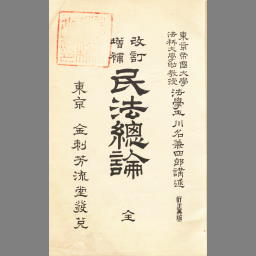 東京帝國大學
法科大學助教授
法學士川名兼四郎講述
訂正第版
改訂
增補
民法總論
全
東京 金刺芳流堂發兌